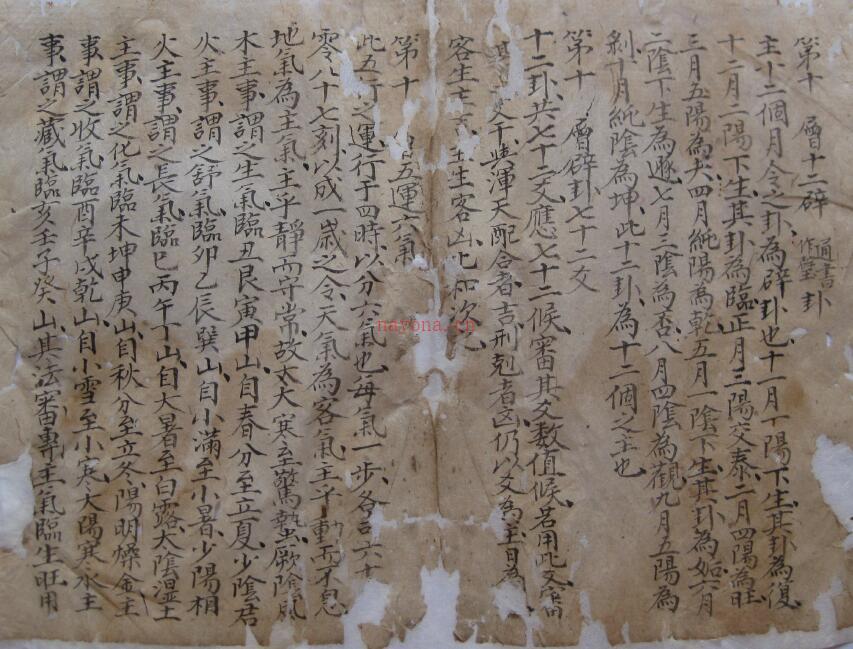 第十 層十二辟 通書作璧 卦
主十二個月令之卦為辟卦也十一月一陽下生其卦為復
十二月二陽下生其卦為臨正月三陽交泰二月四陽為旺
三月五陽為夬四月純陽為乾五月一陰下生其卦為姤六月
二陰下生為遯七月三陰為否八月四陰為觀九月五陽為
剝十月純陰為坤此十二卦為十二個之主也
第十 層辟卦七十二爻
十二卦共七十二爻應七十二候審其爻數值候若用此爻
爻干與渾天配合者吉刑剋者凶仍以爻為主日為
客生主 主生客凶比和次
第十 五運六氣
此五行之運行于四時以分六氣也每氣一步各 六十
零八十七刻以成一歲之令天氣為客氣主乎動而不息
地氣為主氣主乎靜而守常故大寒至驚蟄厥陰風
木主事謂之生氣臨丑艮寅甲山自春分至立夏少陰君
火主事謂之舒氣臨卯乙辰巽山自小滿至小暑少陽相
火主事謂之長氣臨巳丙午丁山自大暑至白露太陰濕土
主事謂之化氣臨未坤申庚山自秋分至立冬陽明燥金主
事謂之收氣臨酉辛戌乾山自小雪至小寒太陽寒水主
事謂之藏氣臨亥壬子癸山其法審專主氣臨生旺用
nayona.cn